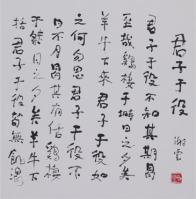 君子于役
君子于役不知其期曷
至哉鷄棲于塒日之夕矣
羊牛下來君子于役如
之何勿思君子于役不
日不月曷其有佸鷄棲
于桀日之夕矣羊牛下
括君子于役苟無飢渴
謝雲